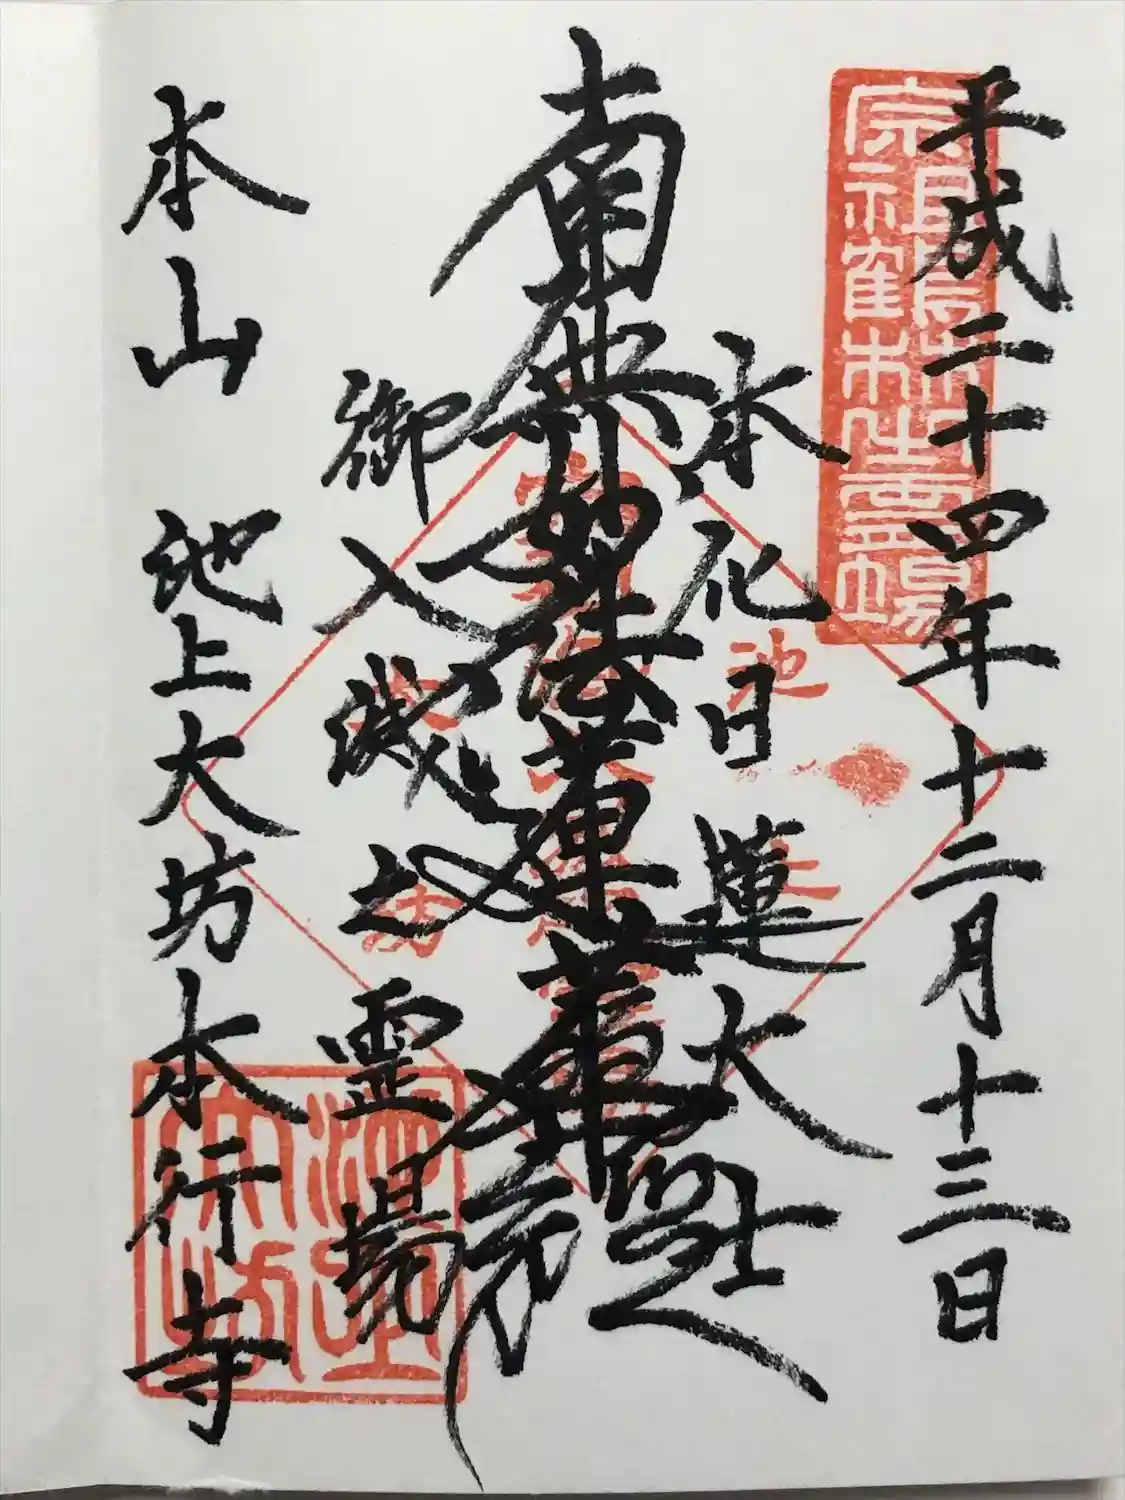 平成二十四年十二月十三日
宗祖鶴林之靈場
本化日蓮大士
南無妙法蓮華経
御入滅之霊場
本山 池上大坊本行寺
池上
大坊
池上
大坊